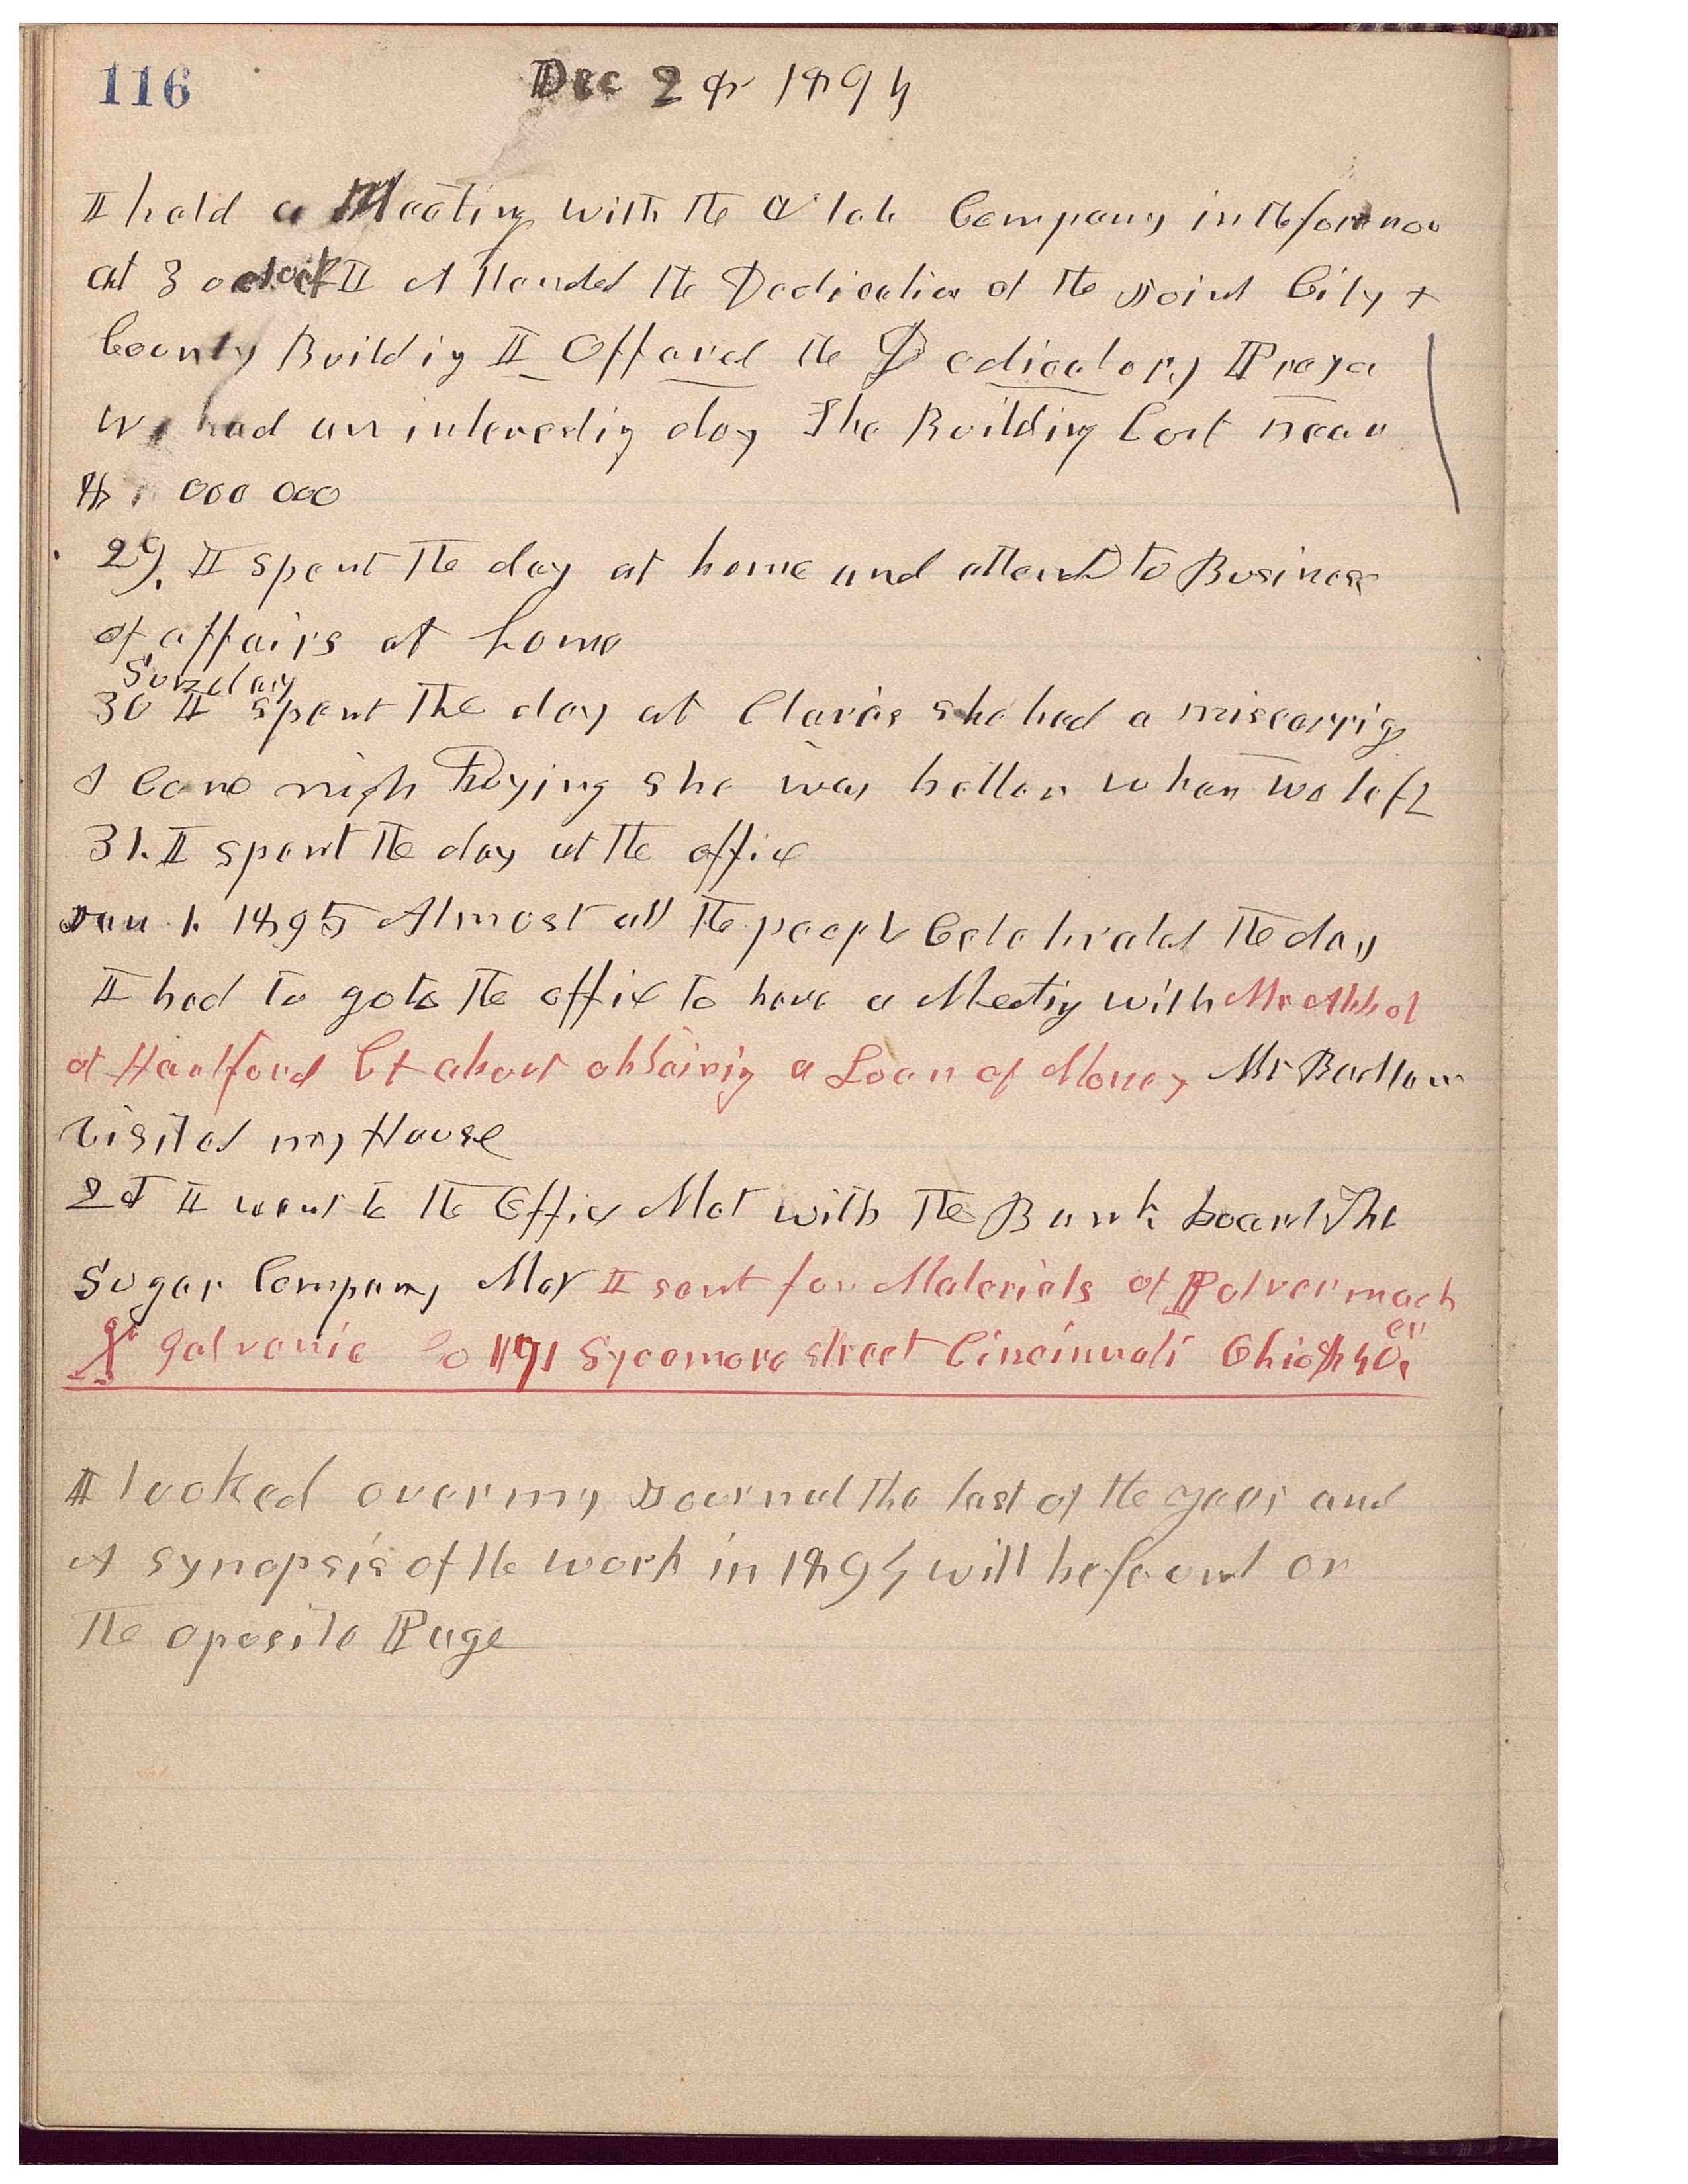 116
Dec 28 1894
I held a Meeting with the Utah Company in the forenoo
At 3 oclock I Attended the Dedication of the Joint City &
County Buildig I Offered the Dedicatory Praye
We had an interestig day The Building Cost near
$1 000 000
29. I spent the day at home and attend to Business
of affairs at home
Sunday
30 I spent the day at Claras she had a miscarrig
& Came nigh Dying she was better when we left
31. I spent the day at the office
Jan 1. 1895 Almost all the people Celebrated the day
I had to go to the office to have a Meetig with Mr Abbot
of Hartford Ct about obtainig a Loan of Money Mr Barlow
visited my House
2d I went to the Office Met with the Bank board The
Sugar Company Met I sent for Materials of Pulvermach
er
X Galvanic Co 1171 Sycamore street Cincinnati Ohio $40.
I looked over my Journal the last of the year and
A synopsis of the work in 1894 will be found on
the oposite Page